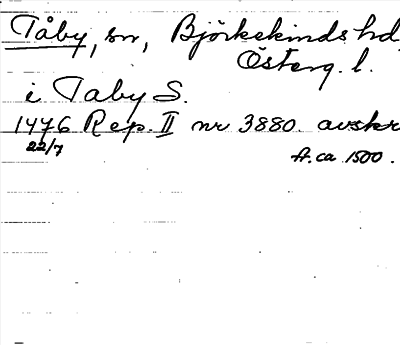 Tåby, sn, Björkekinds hd
Österg. l.
i Taby S.
1476 Rep. II nr 3880. avskr
22/7
fr. ca 1500.